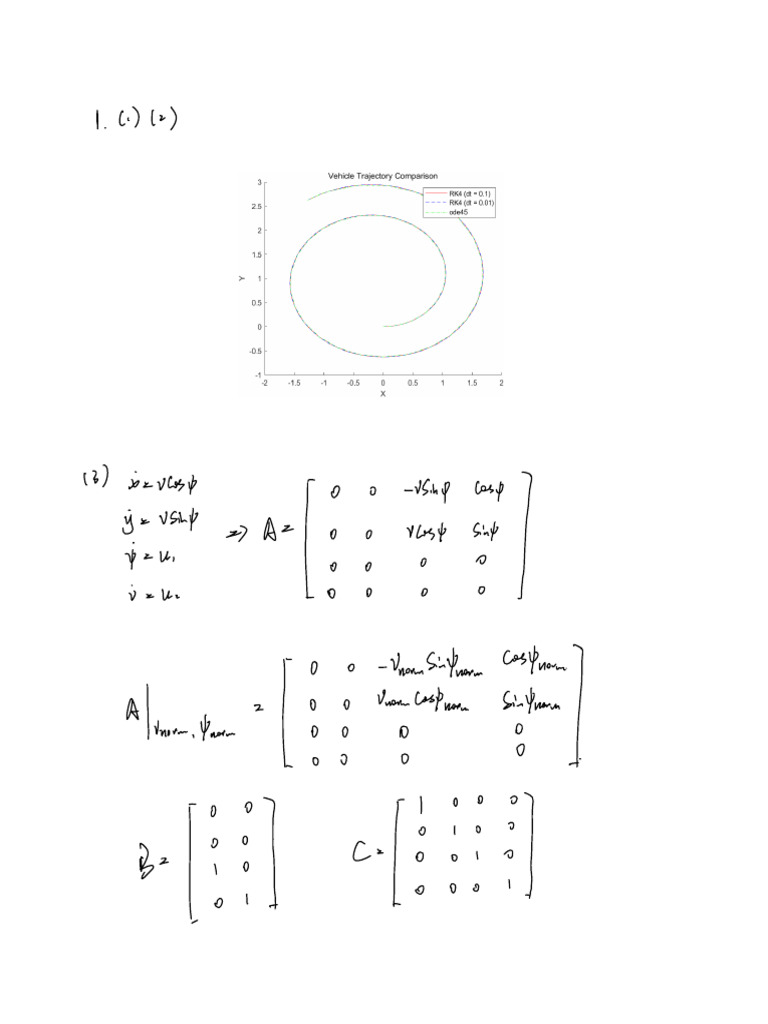 1. (1) (2)
Vehicle Trajectory Comparison
RK4 (dt = 0.1)
RK4 (dt = 0.01)
ode45
3
2.5
2
1.5
1
0.5
0
-0.5
-1
Y
-2 -1.5 -1 -0.5 0 0.5 1 1.5 2
X
(3) ẋ = v cosψ
ẏ = v sinψ
ψ̇ = u₁
v̇ = u₂
=> A =
0 0 -v sinψ cosψ
0 0 v cosψ sinψ
0 0 0 0
0 0 0 0
A|vnorm, ψnorm =
0 0 -vnorm sinψnorm cosψnorm
0 0 vnorm cosψnorm sinψnorm
0 0 0 0
0 0 0 0
B =
0 0
0 0
1 0
0 1
C =
1 0 0 0
0 1 0 0
0 0 1 0
0 0 0 1